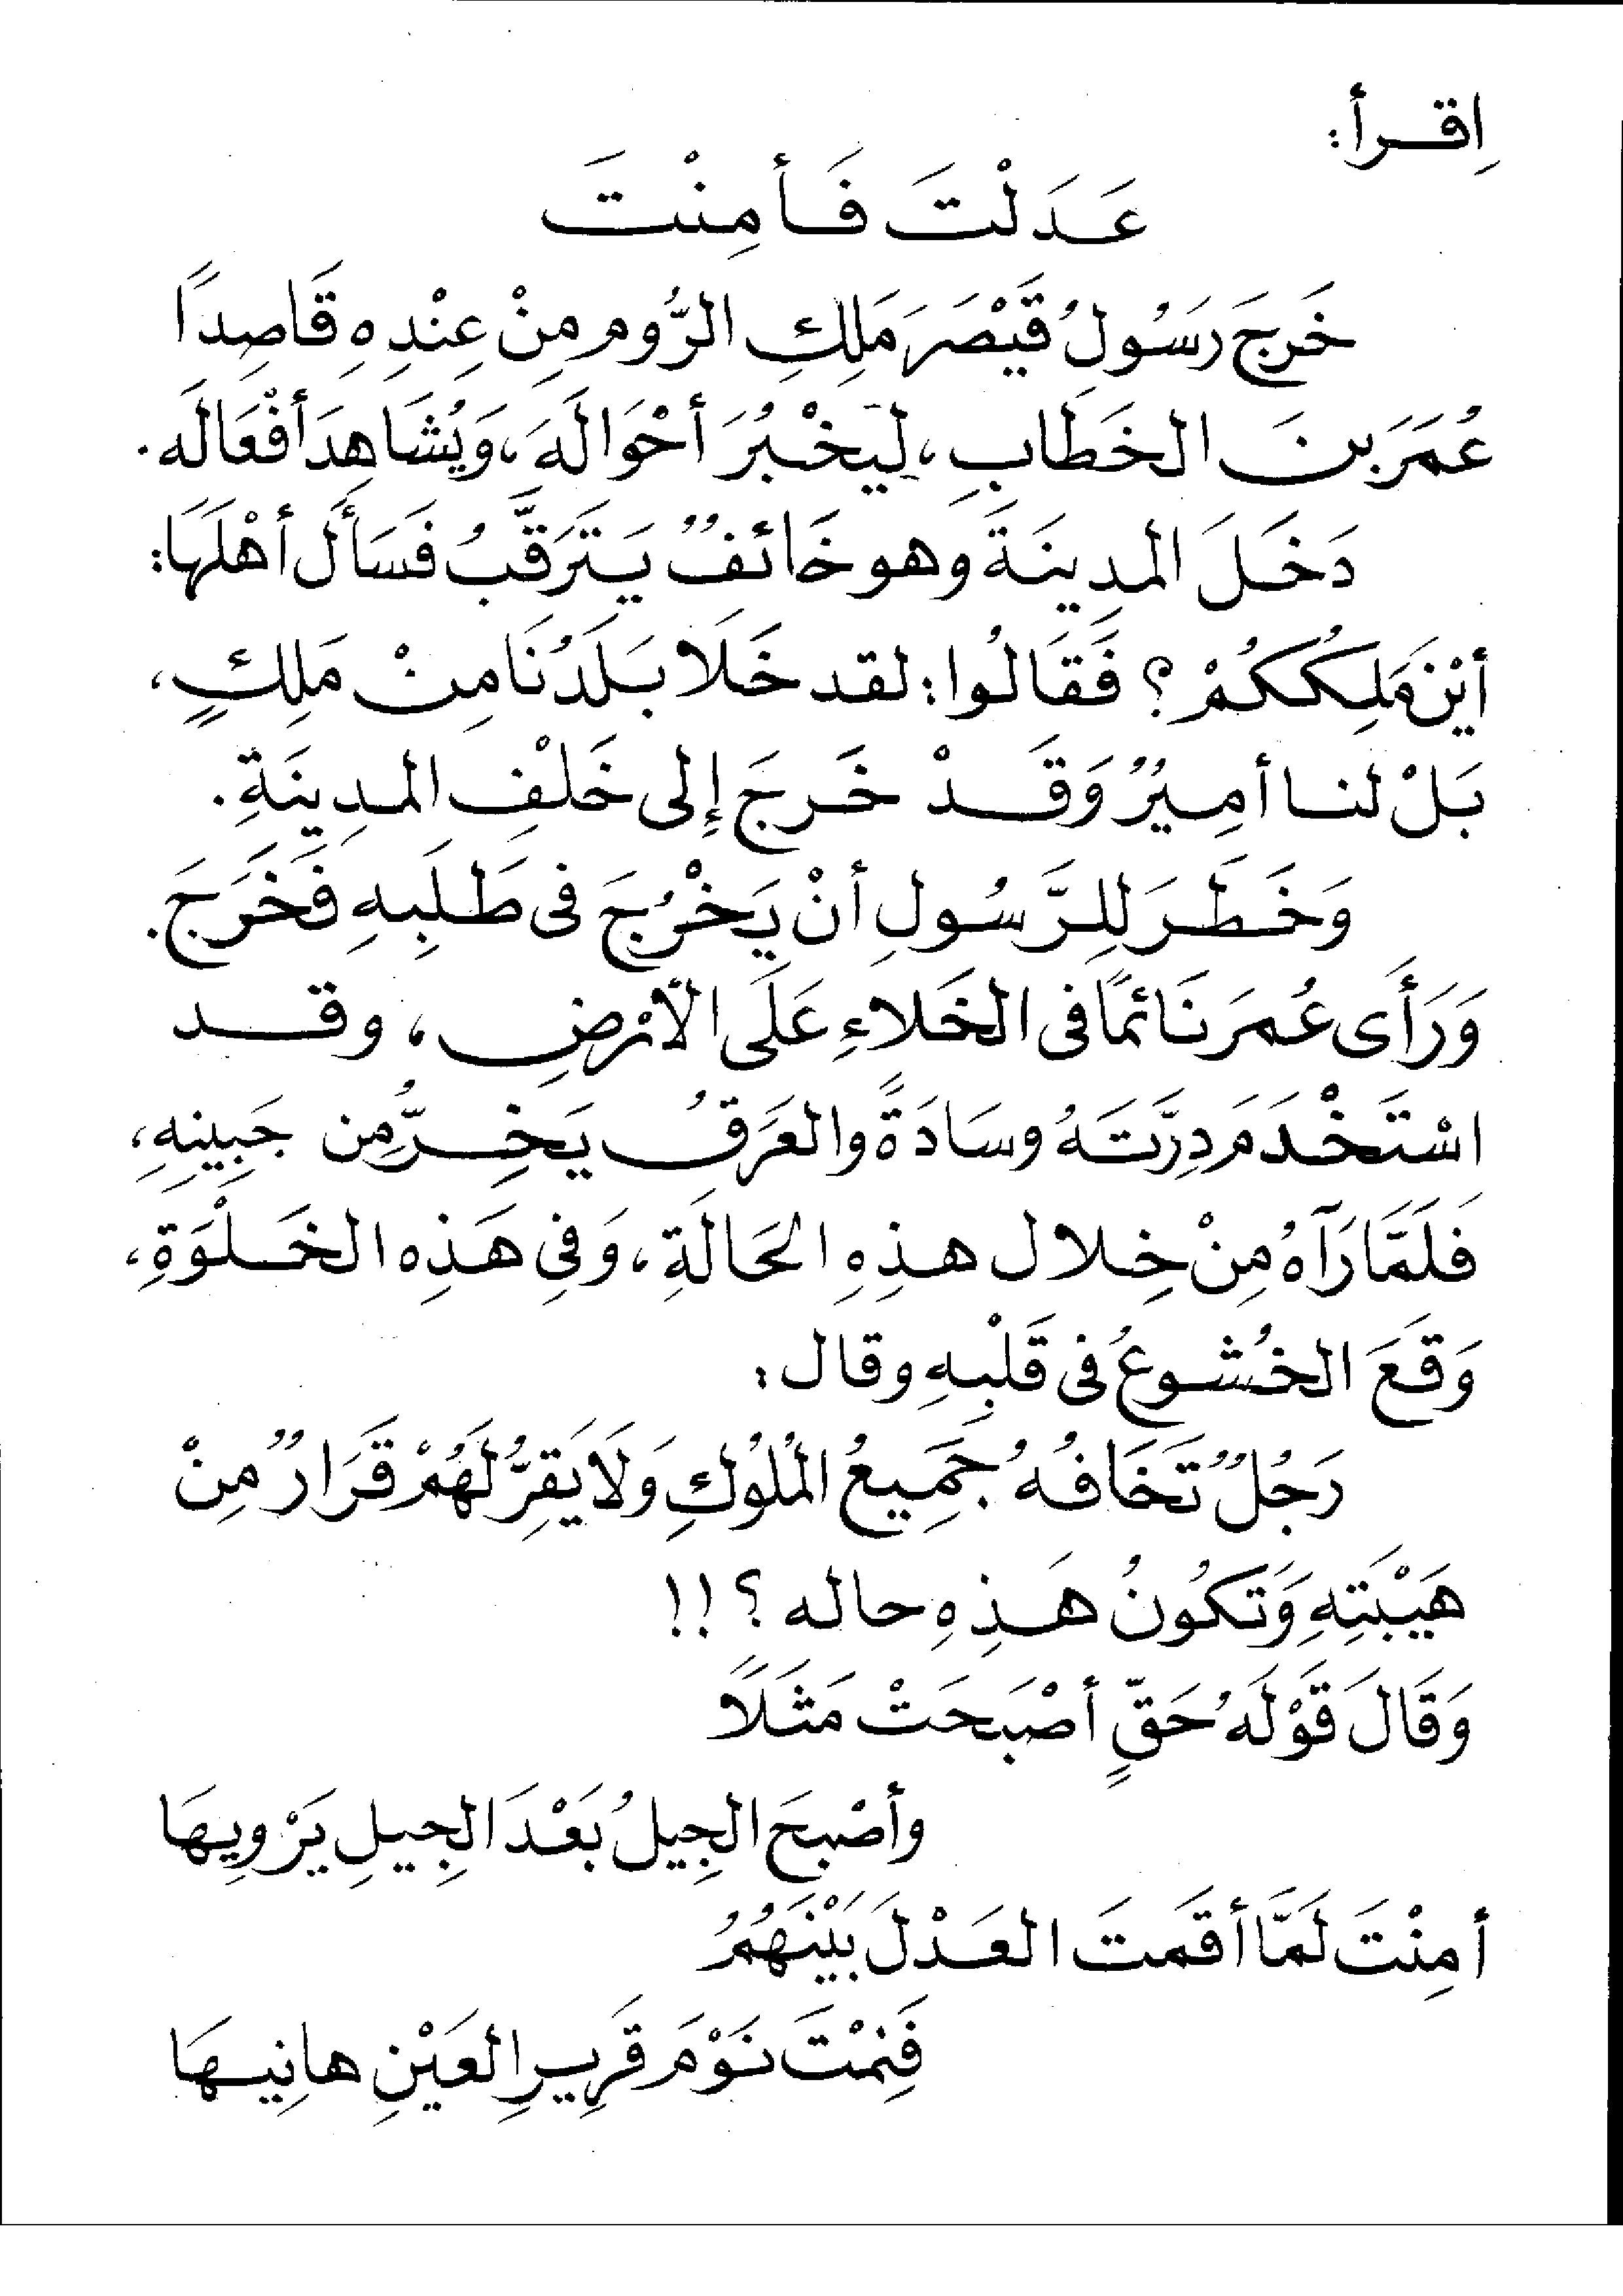 اِقـرأ:
عَـدَلْتَ فَـأمِنْتَ
خَرجَ رَسُولُ قَيْصَرَ مَلِكِ الرُّومِ مِنْ عِنْدِهِ قَاصِدًا
عُمَرَ بنَ الخَطَابِ، لِيَخْبُرَ أحْوَالَهَ، وَيُشَاهِدَ أفْعَالَه.
دَخَلَ المدِينَةَ وهو خَائفٌ يَتَرَقَّبُ فَسَأَل أهْلَهَا:
أيْنَ مَلِكُكُمْ؟ فَقَالُوا: لقد خَلَا بَلَدُنَا مِنْ مَلِكٍ،
بَلْ لنا أمِيرٌ وَقَدْ خَرجَ إِلى خَلْفِ المدِينَةِ.
وَخَطَرَ لِلرَّسُولِ أنْ يَخْرُجَ فى طَلَبِهِ فَخَرَجَ.
وَرَأَى عُمَرَ نَائمًا فى الخَلاءِ عَلَى الأرْضِ، وقد
اسْتَخْدَمَ دِرَّتَهُ وسَادَةً والعَرَقُ يَخِرُّ مِن جَبِينِهِ،
فَلَمَّا رَآهُ مِنْ خِلال هذِهِ الحَالَةِ، وَفِى هَذِه الخَلْوَةِ،
وَقَعَ الخُشُوعُ فى قَلْبِهِ وقال:
رَجُلٌ تَخَافُهُ جَمِيعُ المُلُوكِ وَلَا يَقِرُّ لَهُمْ قَرَارٌ مِنْ
هَيْبَتِهِ وَتَكُونُ هَذِهِ حاله؟!!
وَقَالَ قَوْلَهُ حَقٍّ أصْبَحَتْ مَثَلًا
وأصْبحَ الجِيلُ بَعْدَ الجِيلِ يَرْوِيهَا
أمِنْتَ لَمَّا أقَمتَ العَدْلَ بَيْنَهُمُ
فَنِمْتَ نَوْمَ قَرِيرِ العَيْنِ هانِيهَا